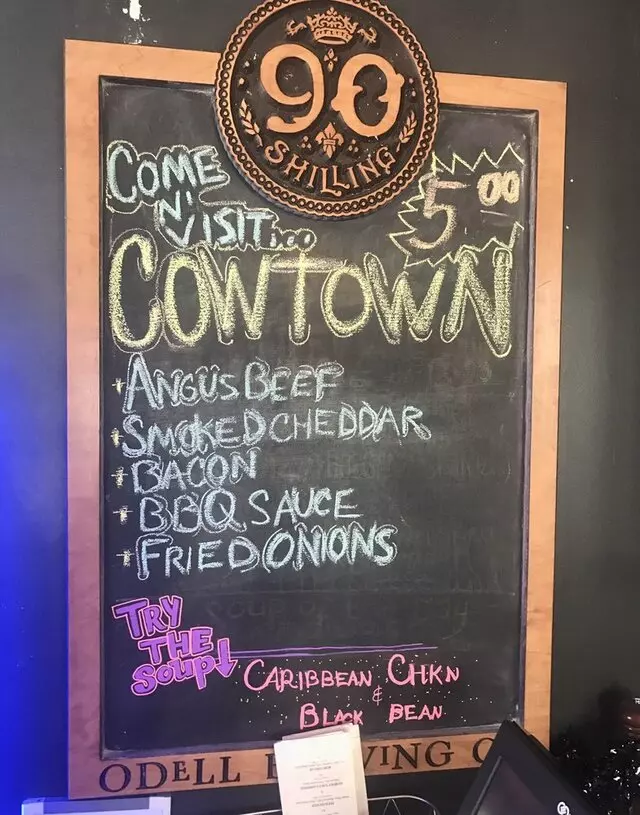 90
SHILLING
COME
N'
VISIT...
5.00
COWTOWN
+ ANGUS BEEF
+ SMOKED CHEDDAR
+ BACON
+ BBQ SAUCE
+ FRIED ONIONS
TRY
THE
Soup!
CARIBBEAN CHKN
&
BLACK BEAN
ODELL